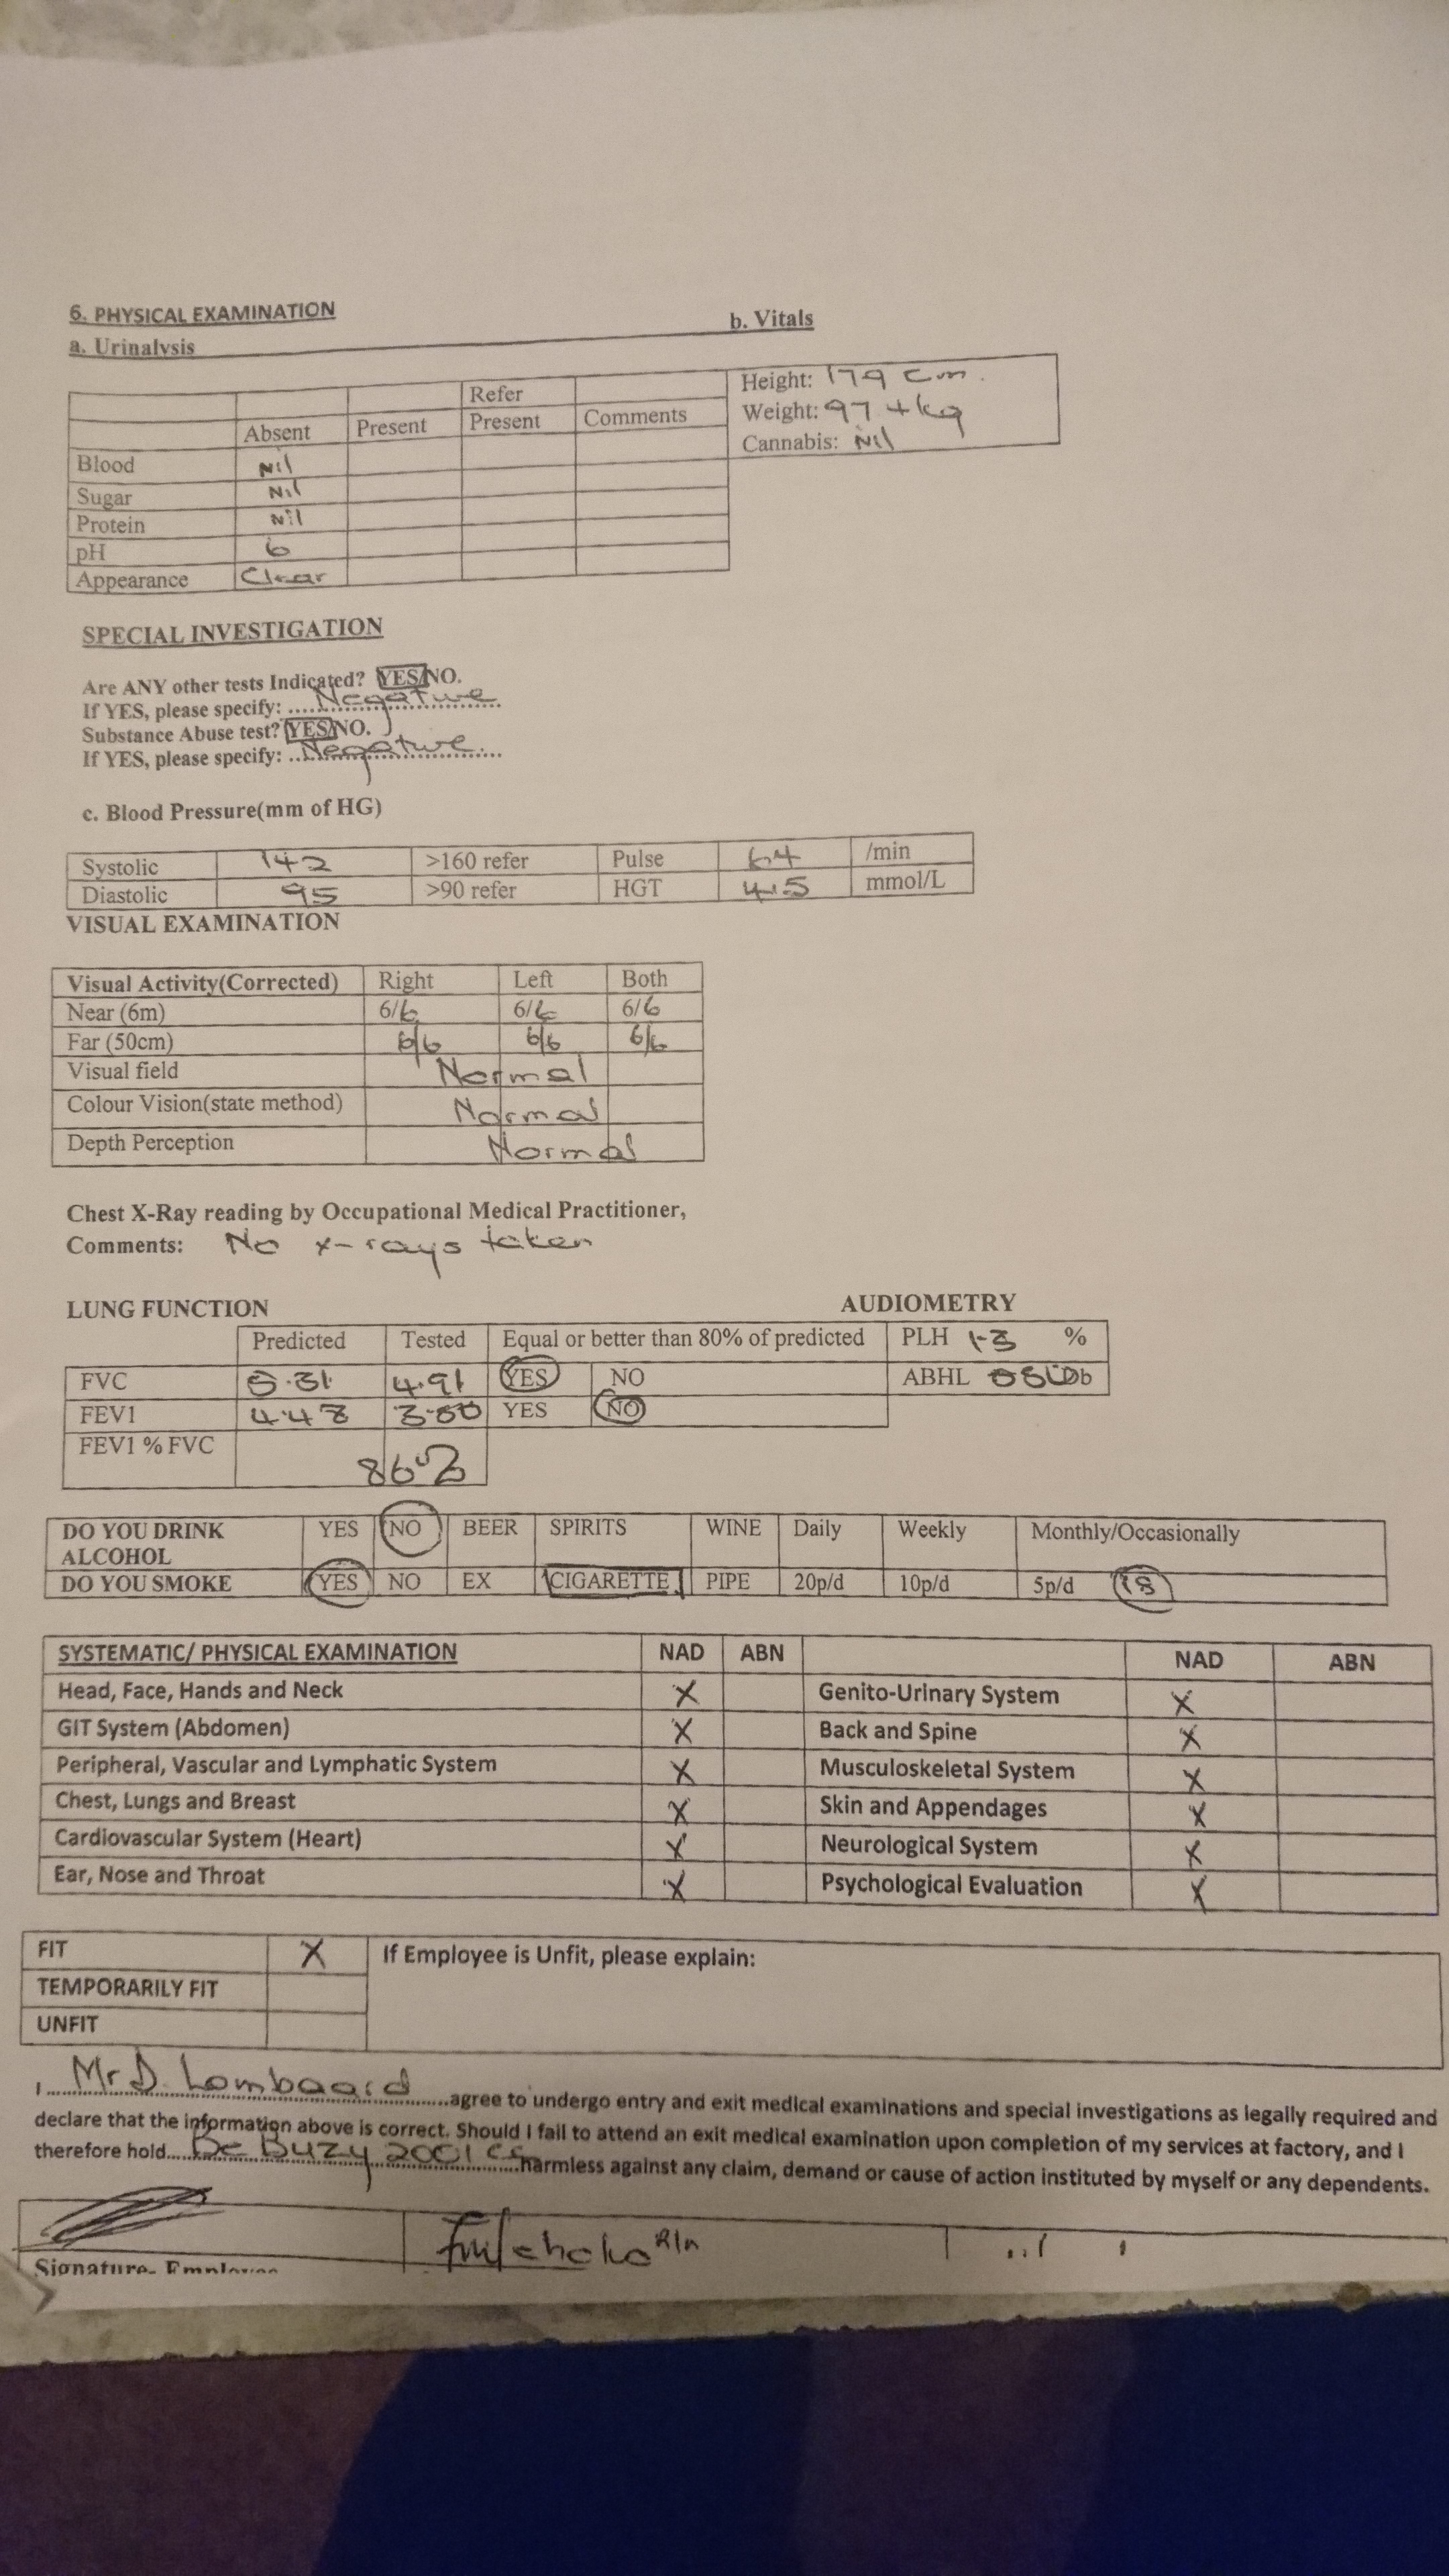 6. PHYSICAL EXAMINATION
a. Urinalysis
b. Vitals
Refer
Absent Present Present Comments
Blood Nil
Sugar Nil
Protein Nil
pH 6
Appearance Clear
Height: 179 cm.
Weight: 97 kg
Cannabis: Nil
SPECIAL INVESTIGATION
Are ANY other tests Indicated? YES/NO.
If YES, please specify: Negative
Substance Abuse test? YES/NO.
If YES, please specify: Negative
c. Blood Pressure(mm of HG)
Systolic 142 >160 refer Pulse 64 /min
Diastolic 95 >90 refer HGT mmol/L
VISUAL EXAMINATION
Visual Activity(Corrected) Right Left Both
Near (6m) 6/6 6/6 6/6
Far (50cm) 6/6 6/6 6/6
Visual field Normal
Colour Vision(state method) Normal
Depth Perception Normal
Chest X-Ray reading by Occupational Medical Practitioner,
Comments: No x-rays taken
LUNG FUNCTION
AUDIOMETRY
Predicted Tested Equal or better than 80% of predicted PLH %
FVC 5.31 4.91 YES NO ABHL Db
FEV1 4.48 YES NO
FEV1 % FVC
DO YOU DRINK ALCOHOL YES NO BEER SPIRITS WINE Daily Weekly Monthly/Occasionally
DO YOU SMOKE YES NO EX CIGARETTE PIPE 20p/d 10p/d 5p/d
SYSTEMATIC/ PHYSICAL EXAMINATION NAD ABN NAD ABN
Head, Face, Hands and Neck X Genito-Urinary System X
GIT System (Abdomen) X Back and Spine X
Peripheral, Vascular and Lymphatic System X Musculoskeletal System X
Chest, Lungs and Breast X Skin and Appendages X
Cardiovascular System (Heart) X Neurological System X
Ear, Nose and Throat X Psychological Evaluation X
FIT X If Employee is Unfit, please explain:
TEMPORARILY FIT
UNFIT
I Mr D. Lombaard agree to undergo entry and exit medical examinations and special investigations as legally required and
declare that the information above is correct. Should I fail to attend an exit medical examination upon completion of my services at factory, and I
therefore hold Be Buzy 2001 cc harmless against any claim, demand or cause of action instituted by myself or any dependents.
Signature- Employee